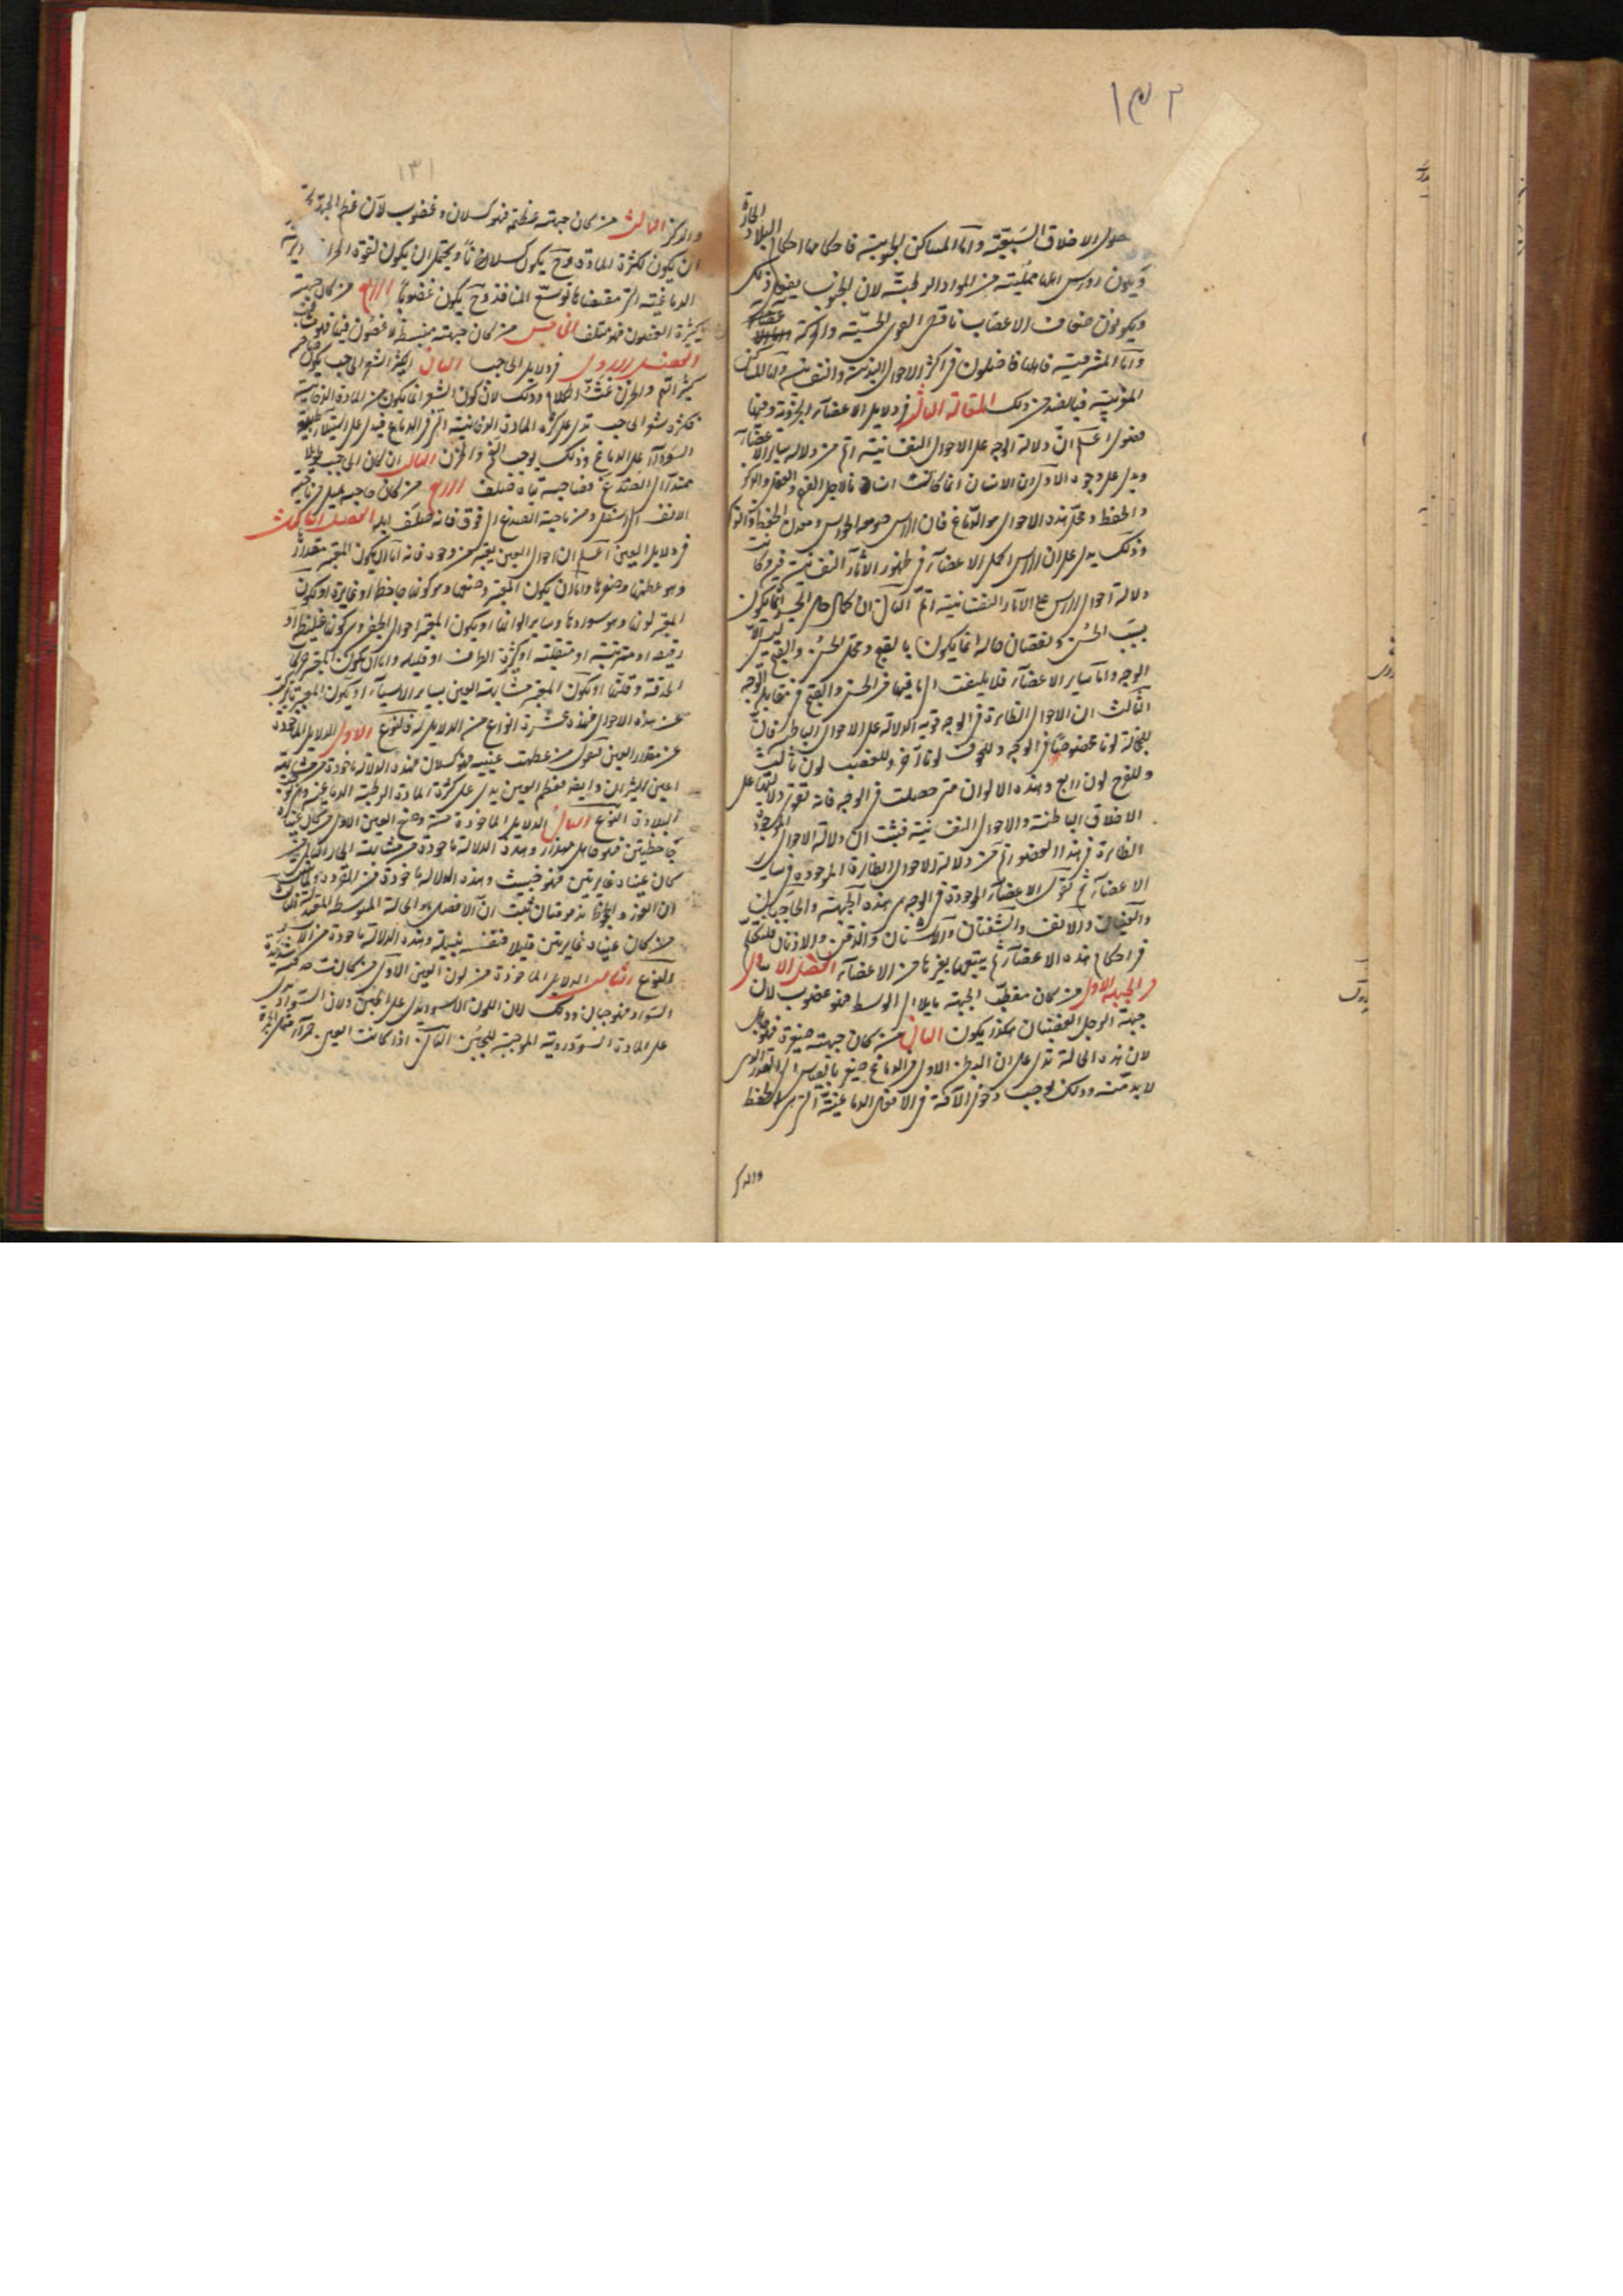 ١٣٢
حول الاخلاق السبعية واما المساكن الجنوبية فاحكامها احكام البلاد الحارة
ويكون رؤس اهلها ممتلئة من المواد الرطبة لان الجنوب يفعل ذلك
ويكونون ضعاف الاعصاب ناقص القوى الحسية والحركة
واما المشرقية فاهلها فاضلون في اكثر الاحوال البدنية والنفسانية واما المساكن
المغربية فبالضد من ذلك المقالة الثالثة في دلايل الاعضاء الجزوية وفيها
فصول اعلم ان دلالة الوجه على الاحوال النفسانية اتم من دلالة ساير الاعضاء
ويدل على وجوه الاول ان الانسان انما كانت انسانا لاجل الفهم والعقل والذكر
والحفظ ومحل هذه الاحوال هو الدماغ فان الراس صومعة الحواس ومعدن الحفظ
وذلك يدل على ان الراس اكمل الاعضاء في ظهور الاثار النفسانية فيه وكانت
دلالة احوال الراس على الاثار النفسانية اتم الثاني ان كمال حال الحس انما يكون
بسبب الحسن ونقصان حاله انما يكون بالقبح ومحل الحسن والقبح ليس الا
الوجه واما ساير الاعضاء فلا يلتفت الى ما فيها من الحسن والقبح في مقابلة الوجه
الثالث ان الاحوال الظاهرة في الوجه قوية الدلالة على الاحوال الباطنة فان
للخجالة لونا مخصوصا في الوجه وللخوف لونا آخر وللغضب لون ثالث
وللفرح لون رابع وهذه الالوان متى حصلت في الوجه فانه تقوى دلالتها على
الاخلاق الباطنة والاحوال النفسانية فثبت ان دلالة الاحوال الموجودة
الظاهرة في هذا العضو اتم من دلالة الاحوال الظاهرة الموجودة في ساير
الاعضاء ثم نقول الاعضاء الموجودة في الوجه هي هذه الجبهة والحاجبان
والعينان والانف والشفتان والاسنان والذقن والاذنان فلنتكلم
في احكام هذه الاعضاء ثم نتبعها بغيرها من الاعضاء الفصل الاول
في الجبهة الاول من كان مقطب الجبهة مايلا الى الوسط فهو غضوب لان
جبهة الرجل الغضبان هكذا يكون الثاني من كان جبهته صغيرة فهو جاهل
لان هذه الحالة تدل على ان البطن الاول من الدماغ صغير بالقياس الى القدر الذي
لا بد منه وذلك يوجب دخول الآفة في الافعال الدماغية التي هي الحفظ
والذكر
١٣١
والذكر الثالث من كان جبهته عظيمة فهو كسلان وغضوب لان عظم الجبهة
ان يكون لكثرة المادة وح يكون كسلانا ويحتمل ان يكون لقوة الحرارة
الدماغية التي مقتضاها توسع المنافذ وح يكون غضوبا الرابع من كان جبهته
كثيرة الغضون فهو متلف الخامس من كان جبهته منبسطة لا غضون فيها فهو
الفصل الاول في دلايل الحاجب الثاني الكثير الشعر الحاجب يكون صاحبه
كثير الهم والحزن غث الكلام وذلك لان كون الشعر انما يكون من المادة الدخانية
فكثرة شعر الحاجب تدل على كثرة المادة الدخانية التي في الدماغ فيدل على استيلاء طبيعة
السوداء على الدماغ وذلك يوجب الغم والحزن الثاني ان كان الحاجب طويلا
ممتدا الى الصدغ فصاحبه تياه صلف الرابع من كان حاجبه يميل من ناحية
الانف الى اسفل ومن ناحية الصدغ الى فوق فانه صلف ابله الفصل الثالث
في دلايل العين اعلم ان احوال العين يعتبر من وجوه فانه اما ان يكون المعتبر مقدارها
وهو عظمها وصغرها واما ان يكون المعتبر وضعها وهو كونها جاحظة او غايرة او يكون
المعتبر لونها وهو سوادها وساير الوانها او يكون المعتبر احوال الجفن وهي كونها غليظة او
رقيقة او مسترخية او متقلبة او كثرة الطرف او قليله واما ان يكون المعتبر حركة
الحدقة وقلتها او يكون المعتبر مشابهة العين بساير الاشياء او يكون المعتبر ما تركب
عن هذه الاحوال فهذه عشرة انواع من الدلايل فالنوع الاول الدلايل الماخوذة
من مقدار العين نقول من عظمت عينيه فهو كسلان وهذه الدلالة ماخوذة من مشابهة
اعين الثيران وايضا فعظم العين يدل على كثرة المادة الرطبة الدماغية وهي توجب
البلادة النوع الثاني الدلايل الماخوذة من وضع العين الاول من كان عيناه
جاحظتين فهو جاهل مهذار وهذه الدلالة ماخوذة من مشابهة الحمار الثاني من
كان عيناه غايرتين فهو خبيث وهذه الدلالة ماخوذة من القرود
ان الغور والجحوظ مذمومتان ثبت ان الافضل هو الحالة المتوسطة المعتدلة الثالث
من كان عيناه غايرتين قليلا فنفسه نبيلة وهذه الدلالة ماخوذة من الاسد
النوع الثالث الدلايل الماخوذة من لون العين الاول من كانت حدقته شديدة
السواد فهو جبان وذلك لان اللون الاسود يدل على الجبن ولان السواد يدل
على المادة السوداوية الموجبة للجبن الثاني اذا كانت العين حمراء مثل الجمرة